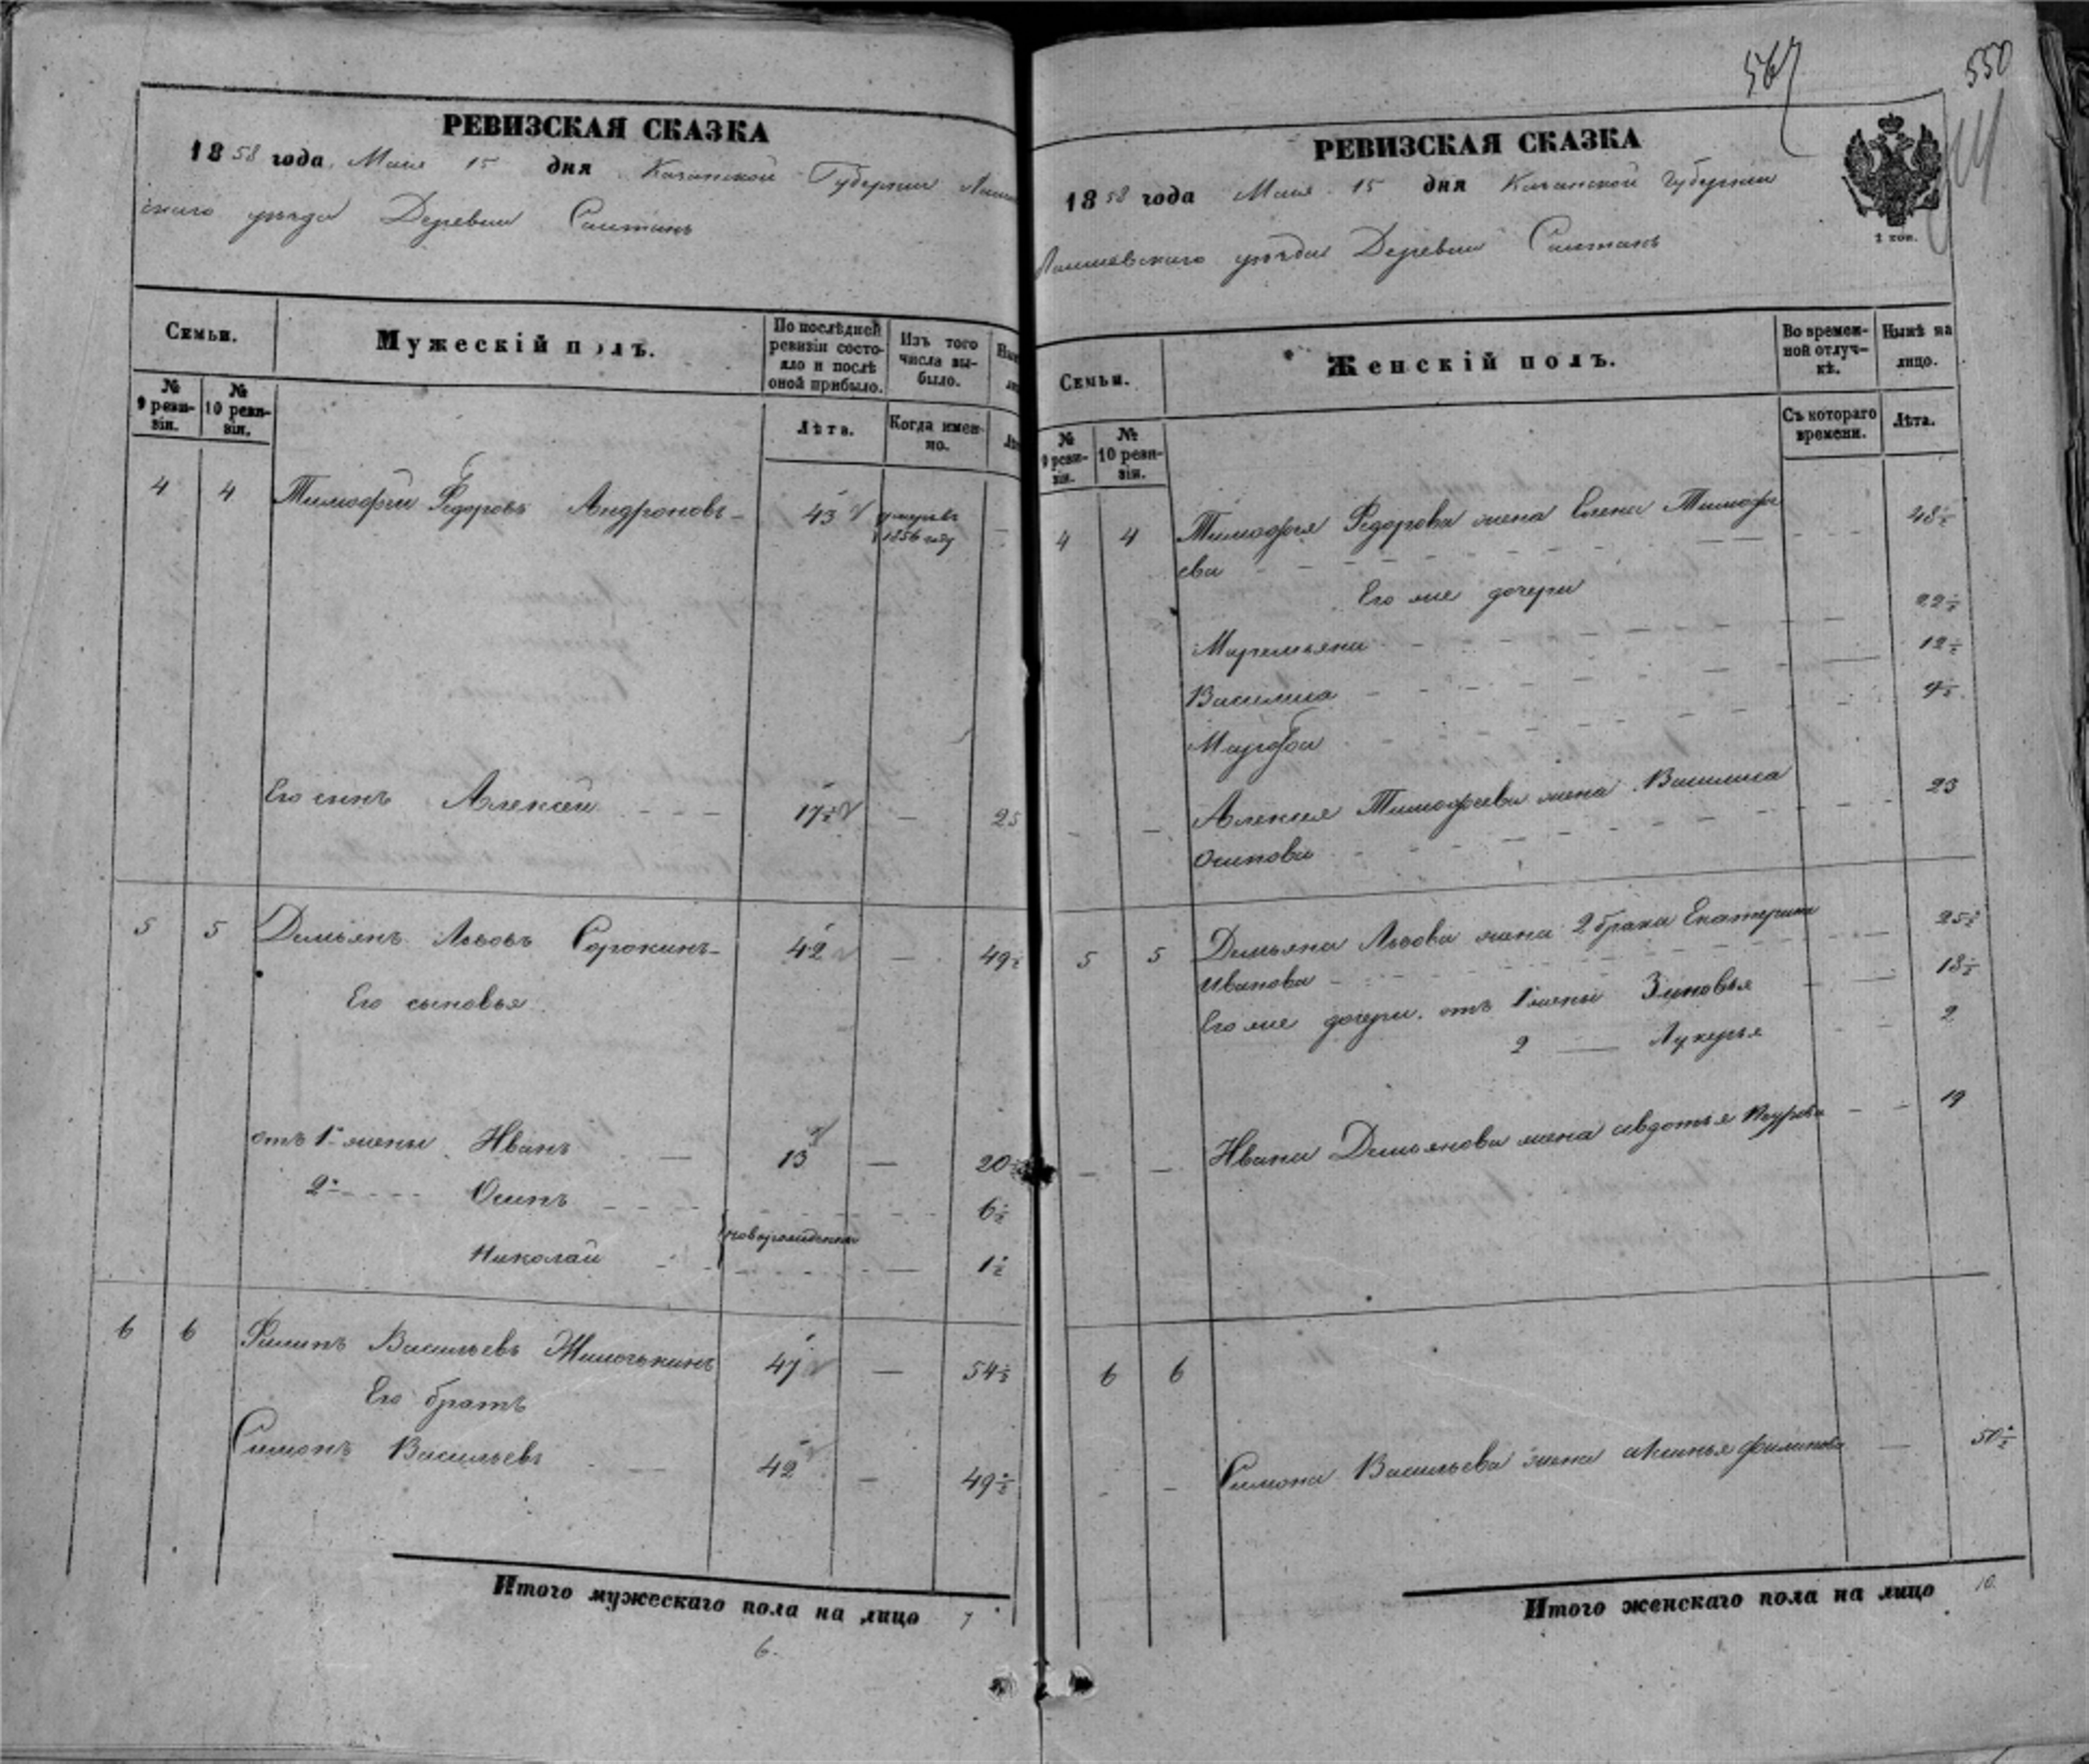 РЕВИЗСКАЯ СКАЗКА
1858 года. Маия 15 дня Казанской Губернии Лаише
скаго уѣзда Деревни Саитинъ
Семьи.
Мужескій полъ.
По послѣдней ревизіи состояло и послѣ оной прибыло.
Изъ того числа выбыло.
№ 9 ревизіи.
№ 10 ревизіи.
Лѣта.
Когда именно.
4 4 Тимофеи Федоровъ Андроновъ 43 умеръ въ 1856 году —
Его сынъ Алексеи 17½ — 25
5 5 Демьянъ Львовъ Сорокинъ 42 — 49½
Его сыновья
отъ 1й жены Иванъ 13 — 20½
2й Осипъ 6½
новорожденны
Николаи — 1½
6 6 Филипъ Васильевъ 47 — 54½
Его братъ
Симонъ Васильевъ — 42 — 49½
Итого мужескаго пола на лицо 7
6.
567
550
РЕВИЗСКАЯ СКАЗКА
1858 года Маия 15 дня Казанской Губернии
2 коп.
Лаишевскаго уѣзда Деревни Саитинъ
Семьи.
Женскій полъ.
Во временной отлучкѣ.
Нынѣ на лицо.
№ 9 ревизіи.
№ 10 ревизіи.
Съ котораго времени.
Лѣта.
4 4 Тимофея Федорова жена Елена Тимофе 48½
ева
Его же дочери
22½
Маремьяна
12½
Василиса
Марфа
— — Алексея Тимофеева жена Василиса 23
Осипова
5 5 Демьяна Львова жена 2 брака Екатерина 25½
Иванова
Его же дочери. отъ 1 жены Зиновья 18½
2 — Лукерья 2
— — Ивана Демьянова жена авдотья — 19
6 6
— — Симона Васильева жена аксинья филипова — 50½
Итого женскаго пола на лицо 10.